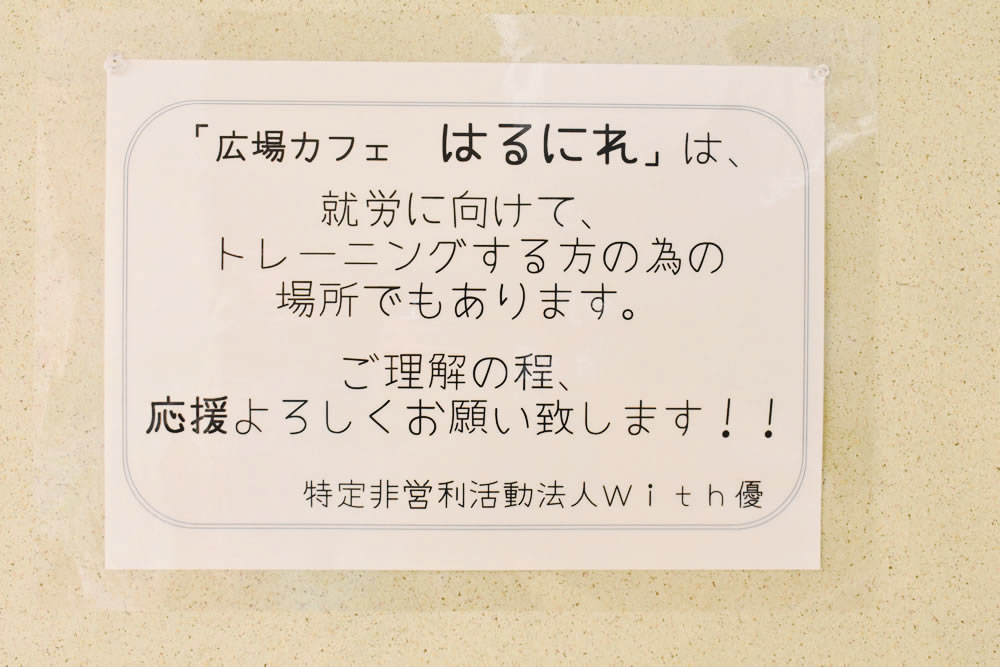 「広場カフェ　はるにれ」は、
就労に向けて、
トレーニングする方の為の
場所でもあります。
ご理解の程、
応援よろしくお願い致します！！
特定非営利活動法人Ｗｉｔｈ優